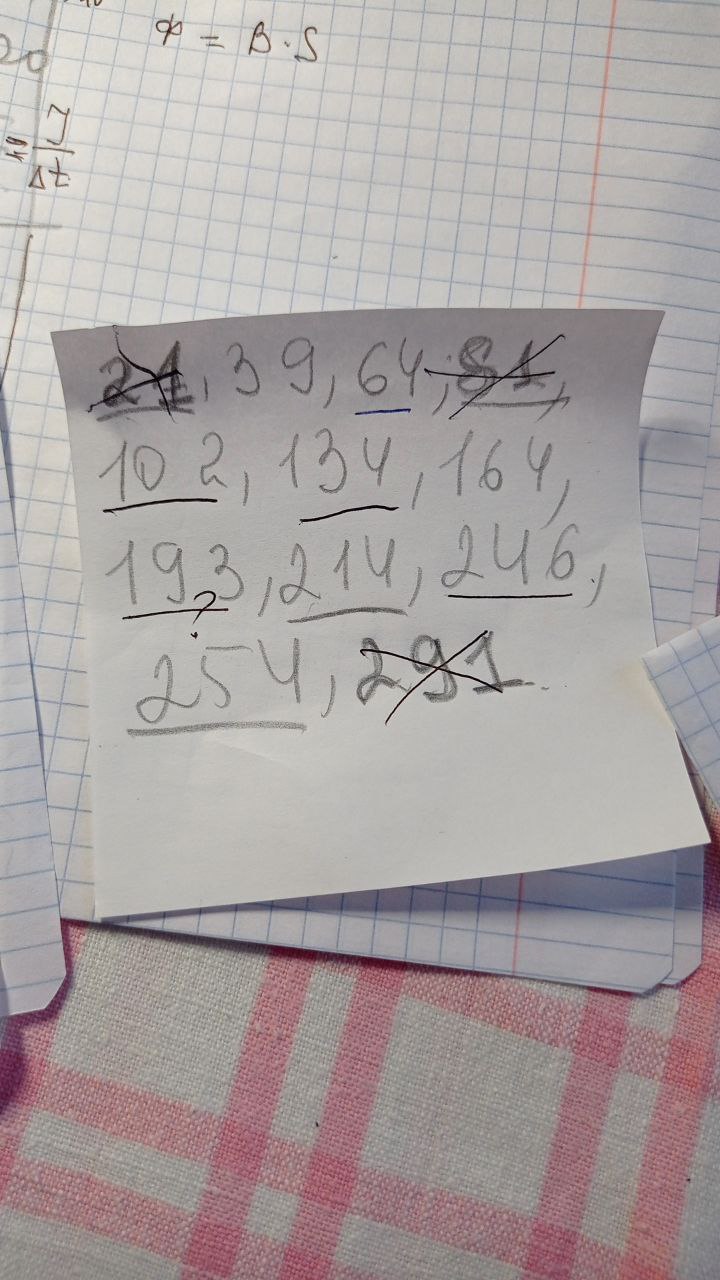 20
Φ = B·S
Δt
21, 39, 64, 81,
102, 134, 164,
193, 214, 246,
?
254, 291.